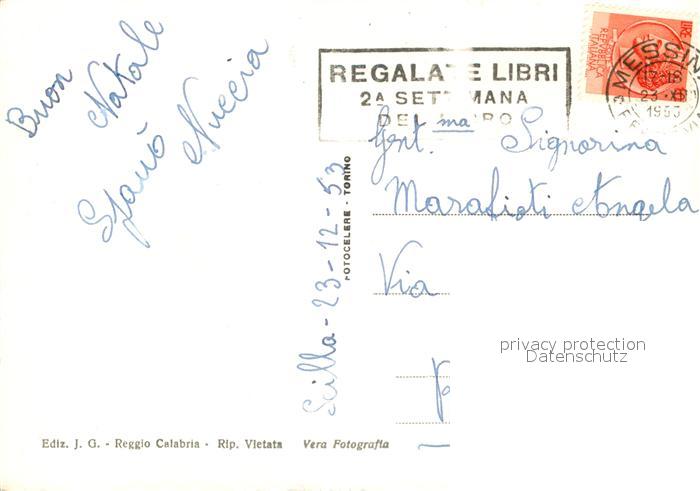 Buon Natale
Spanò Nuccia
Scilla - 23-12-53
FOTOCELERE - TORINO
REGALATE LIBRI
2A SETTIMANA
DEL LIBRO
REPUBBLICA
ITALIANA
LIRE
MESSINA
17-18
23 XII
1953
FERROVIA
Gent.ma Signorina
Marafioti Angela
Via
privacy protection
Datenschutz
Ediz. J. G. - Reggio Calabria - Rip. Vietata Vera Fotografia